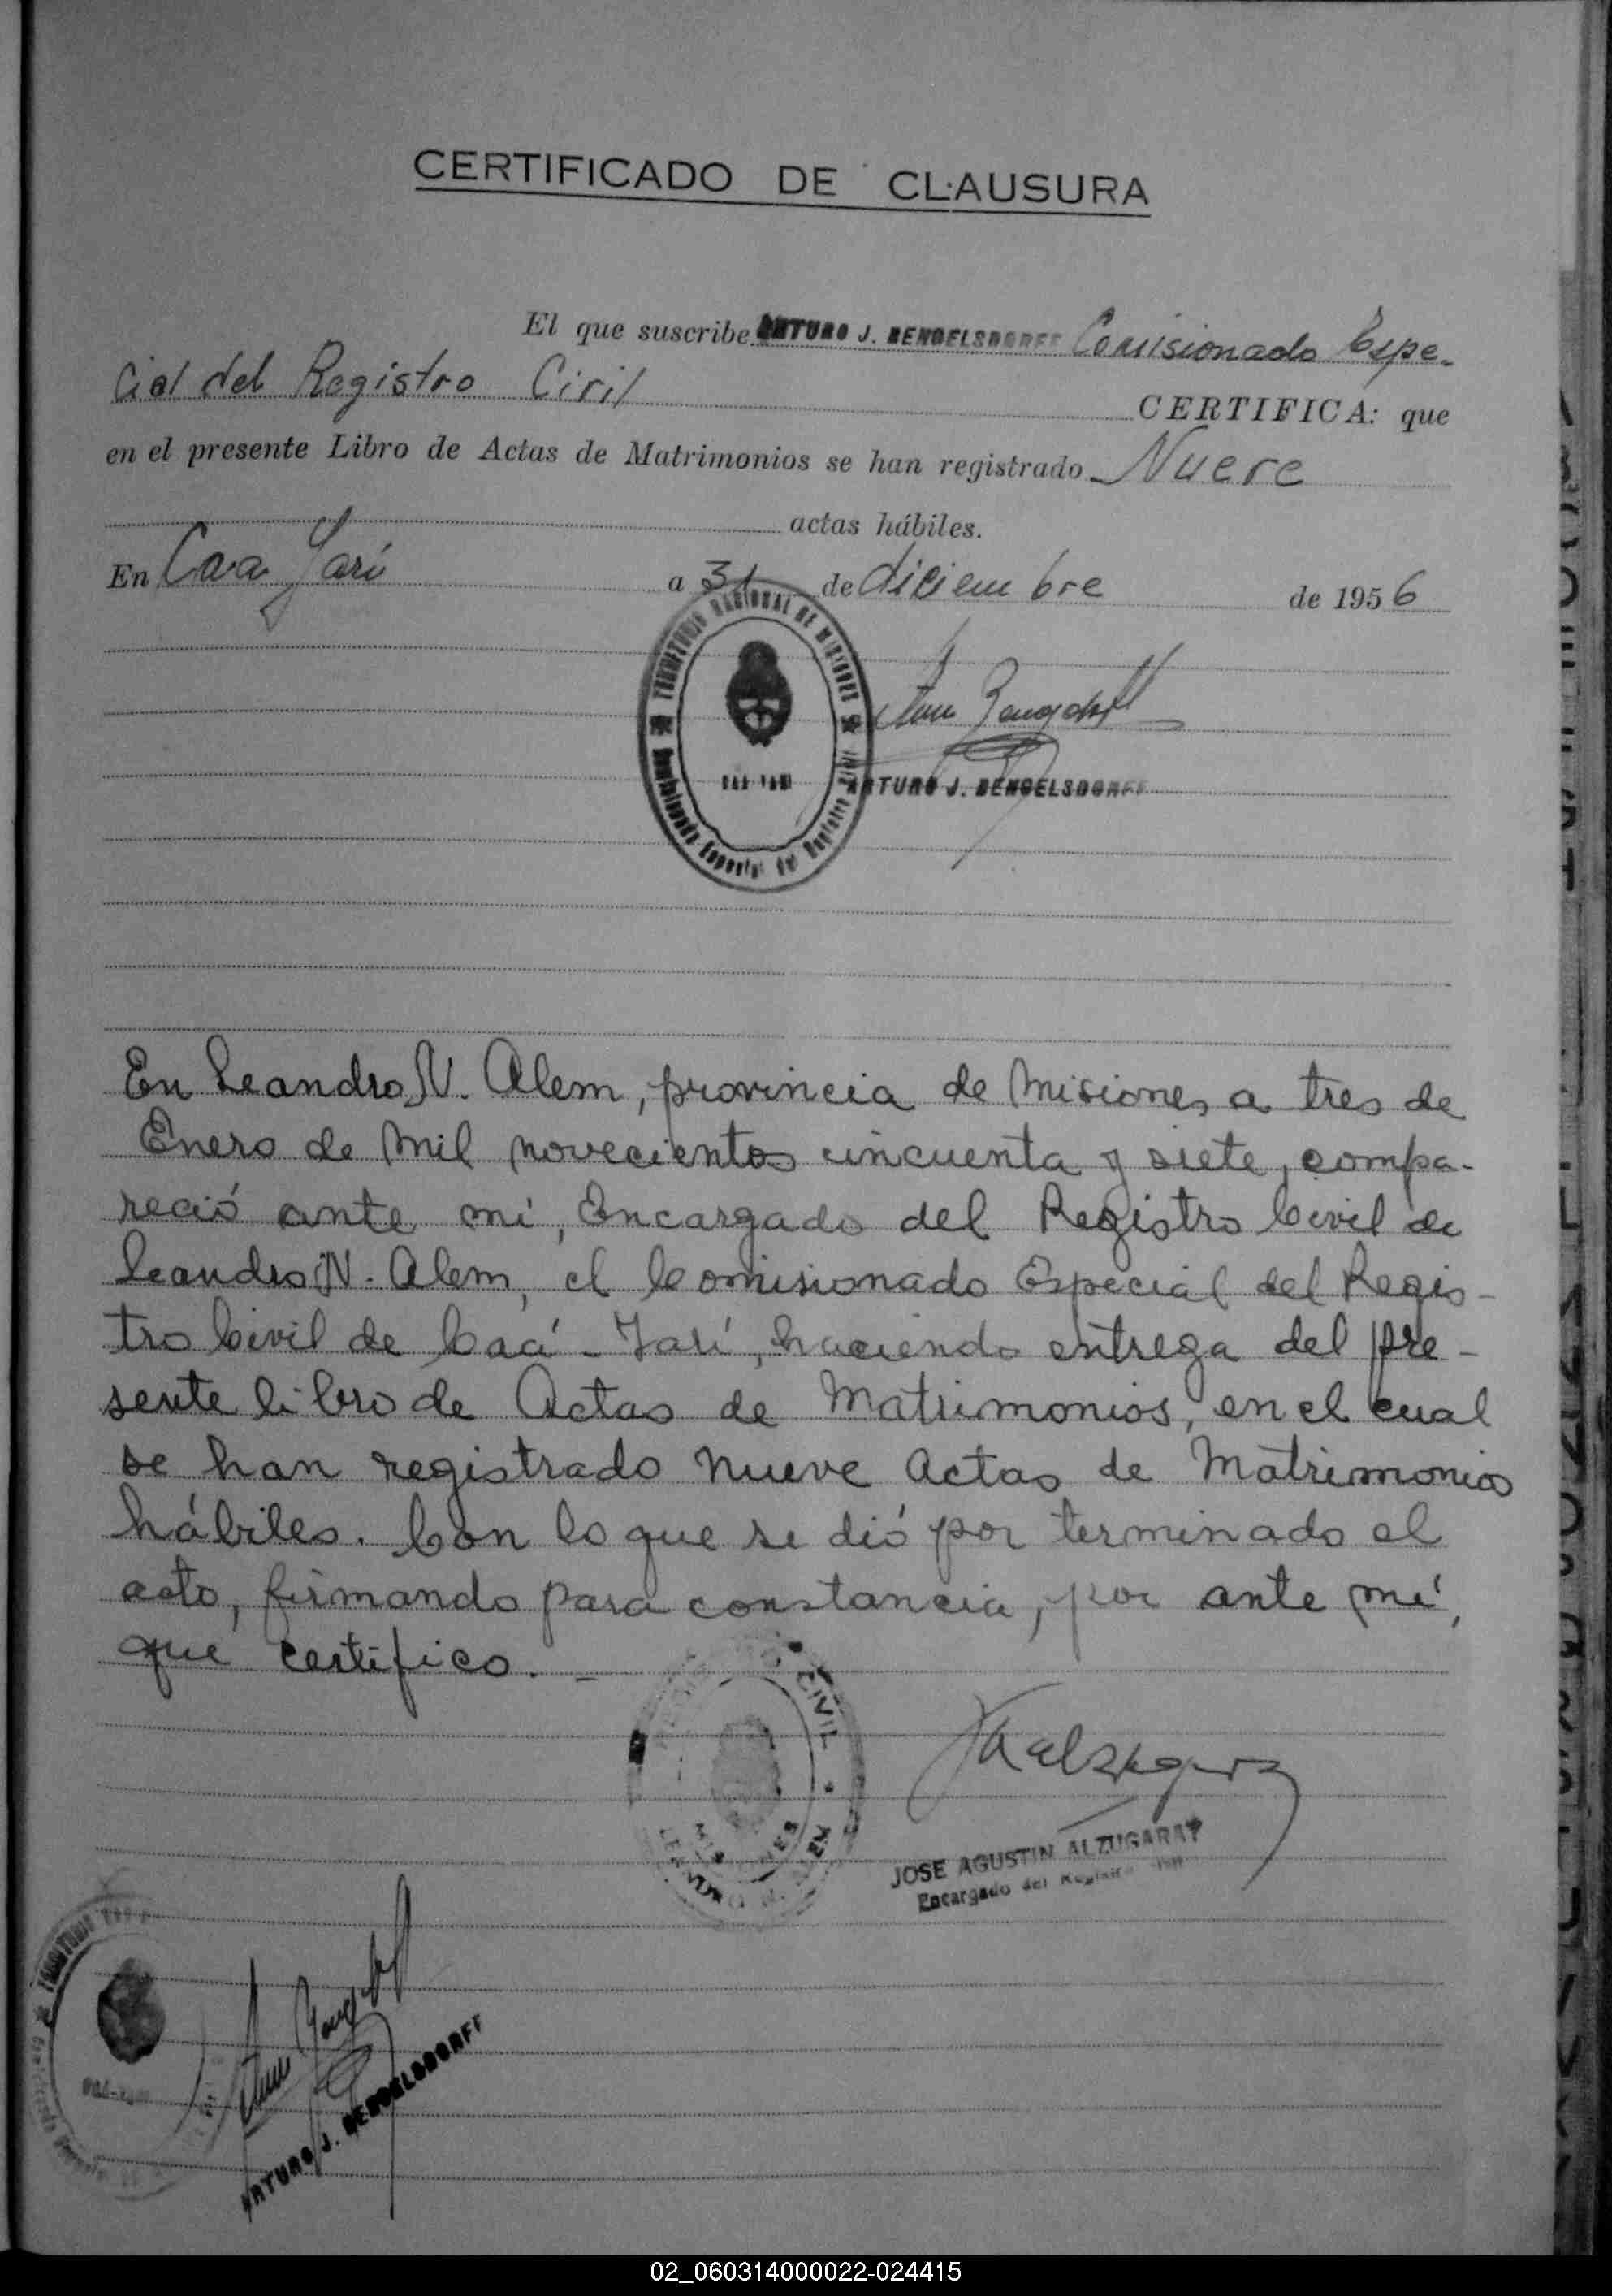 CERTIFICADO DE CLAUSURA
El que suscribe ARTURO J. BENGELSDORFF Comisionado Espe-
cial del Registro Civil CERTIFICA: que
en el presente Libro de Actas de Matrimonios se han registrado Nueve
actas hábiles.
En Caa Yarí a 31 de diciembre de 1956
TERRITORIO NACIONAL DE MISIONES
CAA-YARI
Comisionado Especial del Registro
ARTURO J. BENGELSDORFF
En Leandro N. Alem, provincia de Misiones a tres de
Enero de mil novecientos cincuenta y siete, compa-
reció ante mí, Encargado del Registro Civil de
Leandro N. Alem, el Comisionado Especial del Regis-
tro Civil de Caá-Yarí, haciendo entrega del pre-
sente libro de Actas de Matrimonios, en el cual
se han registrado nueve actas de Matrimonios
hábiles. Con lo que se dió por terminado el
acto, firmando para constancia, por ante mí,
que certifico. -
CIVIL
LEANDRO N.
JOSE AGUSTIN ALZUGARAY
Encargado del Registro Civil
CAA-YARI
ARTURO J. BENGELSDORFF
02_060314000022-024415